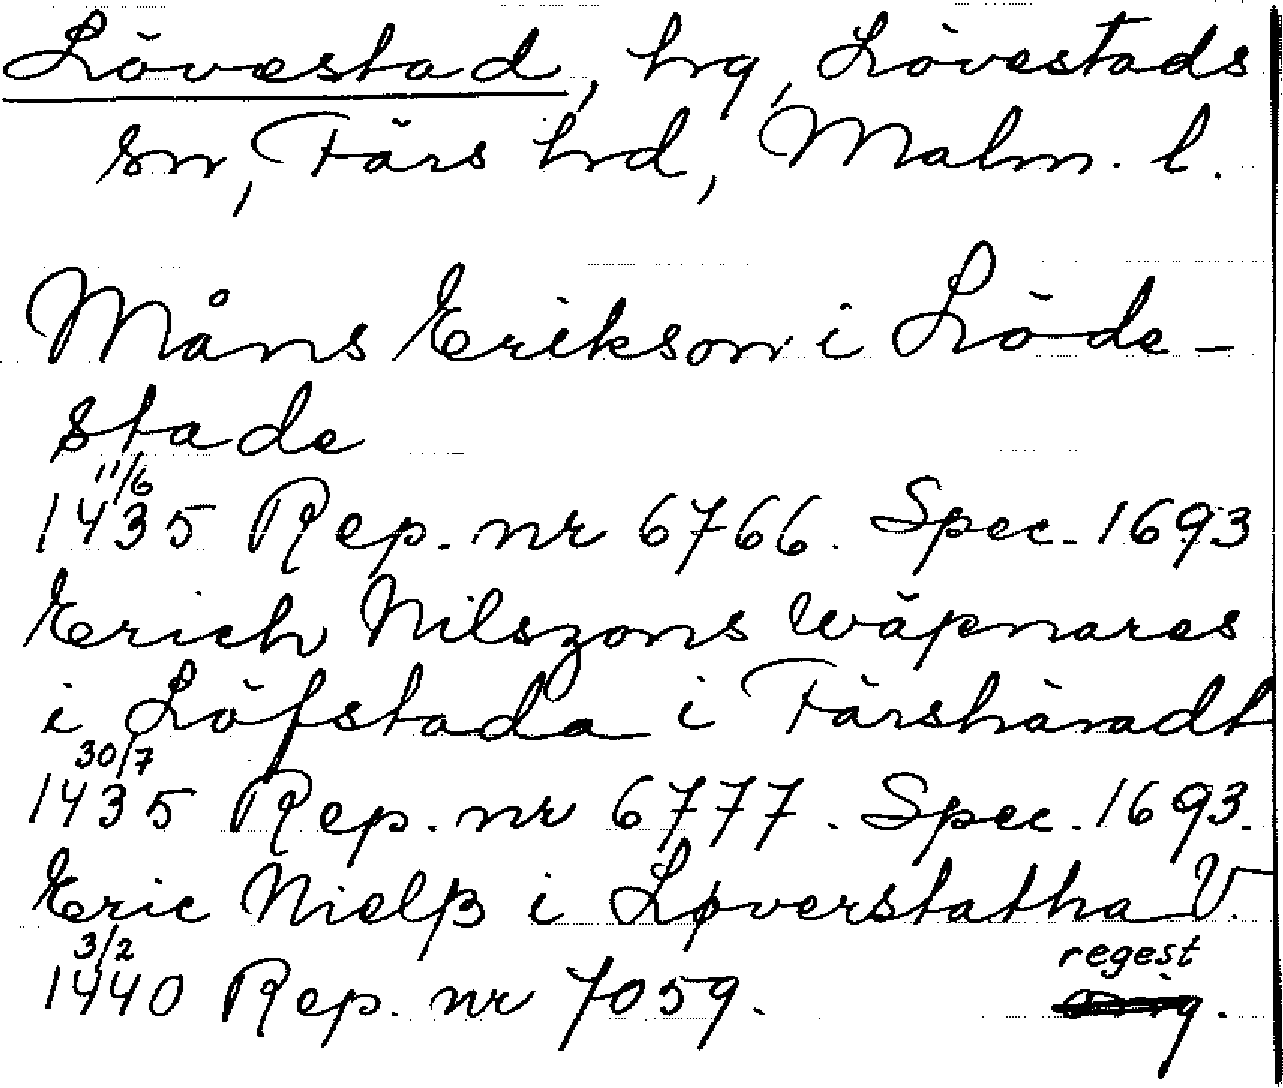 Lövestad, hrg, Lövestads
sn, Färs hrd, Malm. l.
Måns Erikson i Löde-
stade
11/6
1435 Rep. nr 6766. Spec. 1693
Erich Nilszons wäpnares
i Löfstada i Färshäradt
30/7
1435 Rep. nr 6777. Spec. 1693.
Eric Nielß i Løverstatha V.
3/2 regest
1440 Rep. nr 7059.